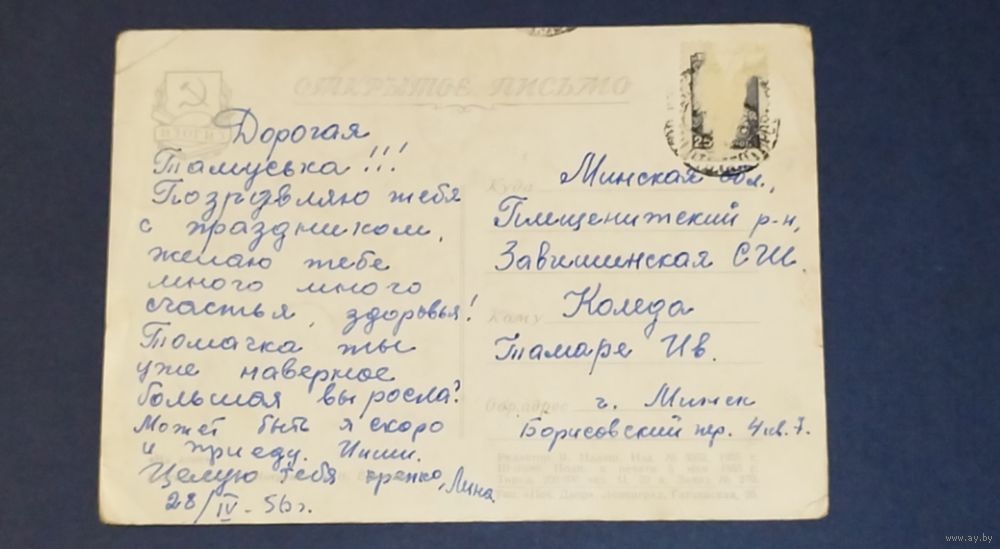 ОТКРЫТОЕ ПИСЬМО
ИЗОГИЗ
Дорогая
Тамуська!!!
Поздравляю тебя
с праздником,
желаю тебе
много много
счастья, здоровья!
Томачка ты
уже наверное
большая выросла?
Может быть я скоро
и приеду. Пиши.
Целую тебя крепко, Лина
28/IV - 56 г.
Куда Минская обл.,
Плещенижский р-н,
Завишинская СШ.
Кому Коледа
Тамаре Ив.
Обр. адрес г. Минск
Борисовский пер. 4 кв. 7.
www.ay.by